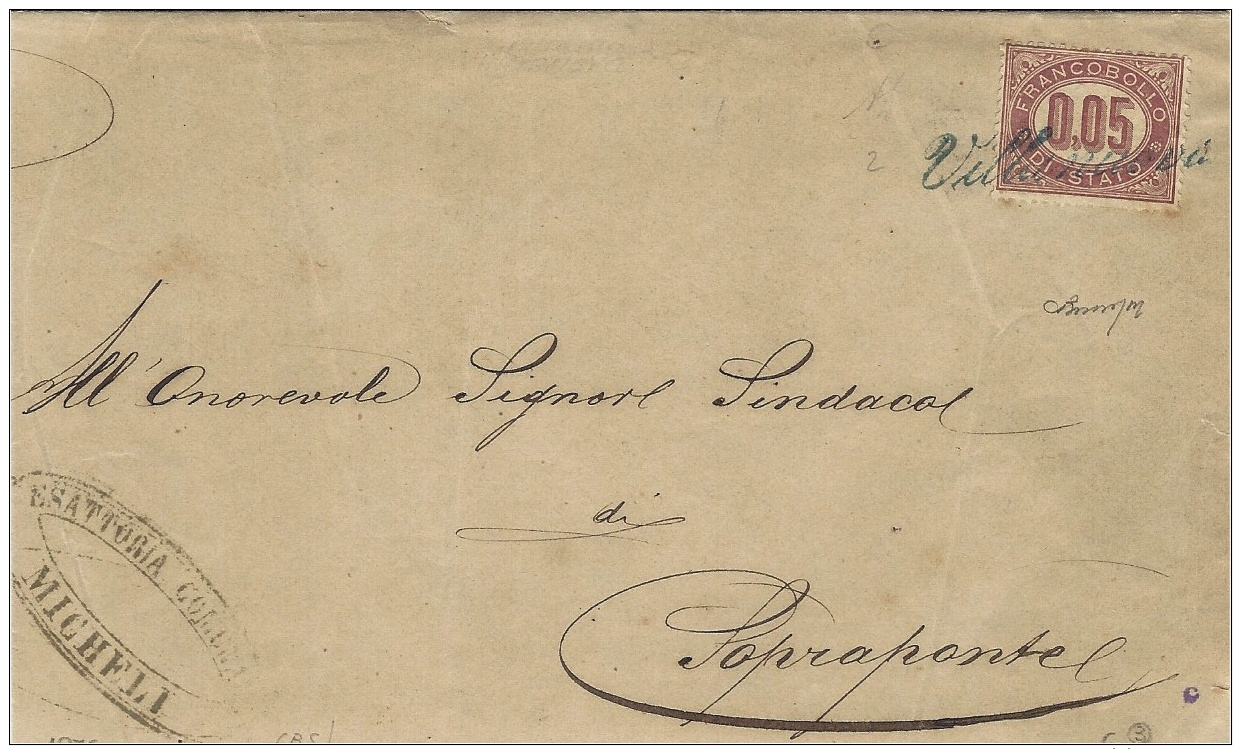 FRANCOBOLLO
0,05
DI STATO
Villanuova
All' Onorevole Signore Sindaco
di
Sopraponte
ESATTORIA COMUNALE
MICHELI
2
3